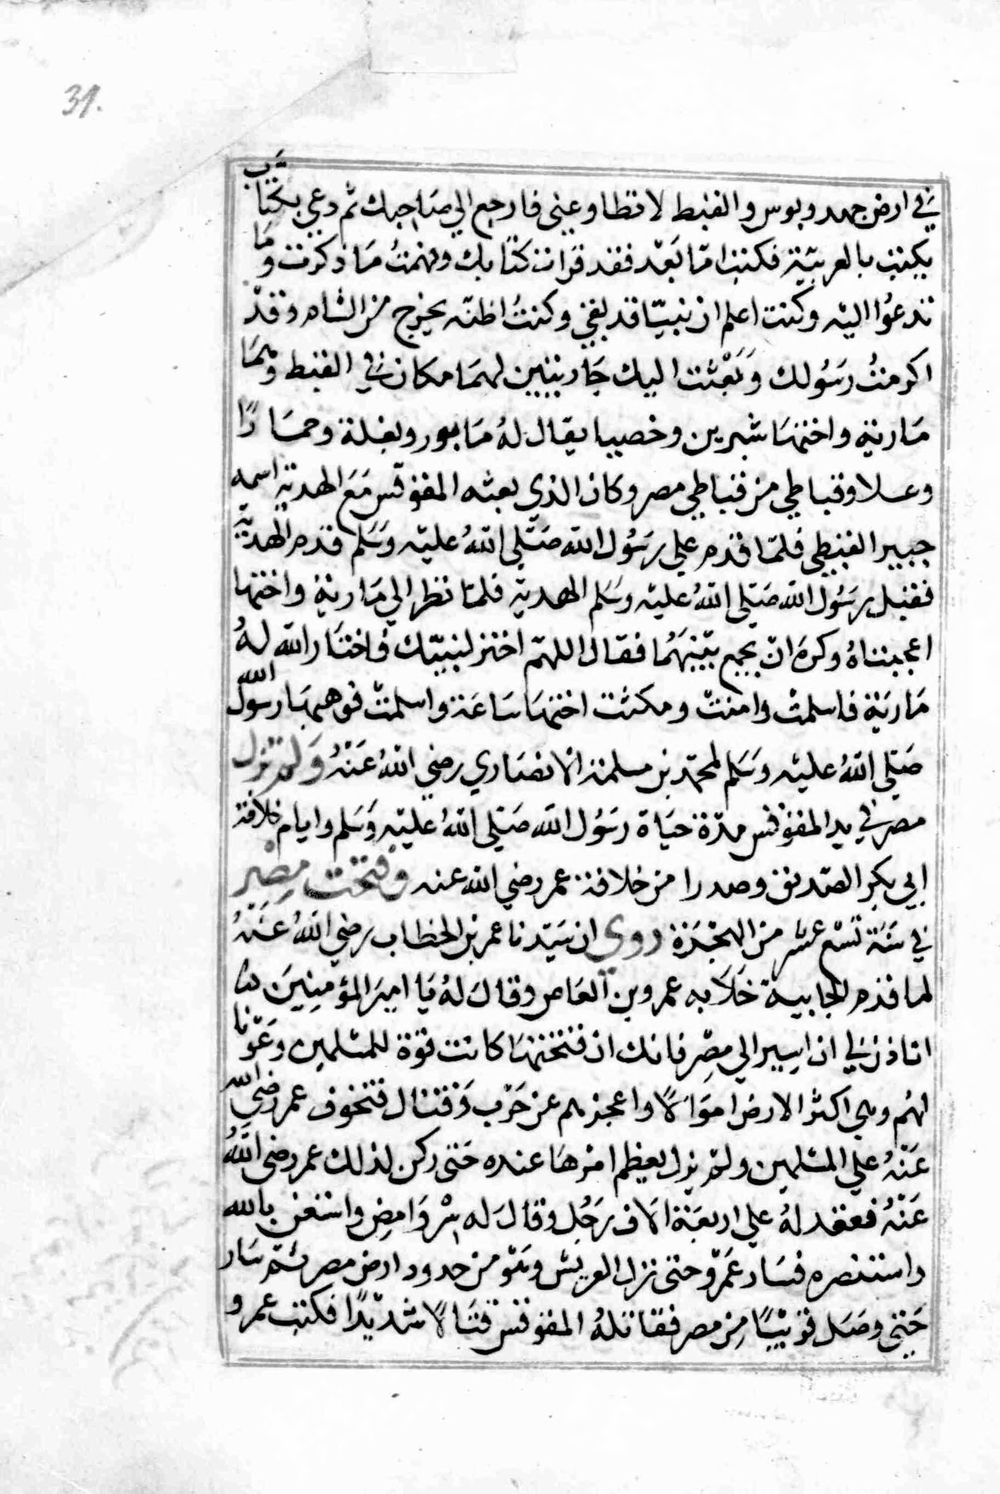 31.
في ارض جهد وبوس والقبط لا تطاوعني فارجع الي صَاحبك ثم دعي بكتَابَ
يكتب بالعربيّة فكتب امّا بَعْد فقد قرات كتابك وفهمتُ مَا ذكرت ومَا
تدعُوا اليْه وكنت اعلم ان نبيّا قد بقي وكنتُ اظنّه يخرج من الشام وقدْ
اكرمتُ رسُولك وَبَعْثت اليك جَاريتين لهمَا مكان في القبط وهمَا
مَارية واختهَا شيرين وخصيا يقال لهُ مَابور وبغلة وحمَارًا
وعسلا وقباطي من قباطي مصر وكان الذي بعثه المقوقس مَعَ الهديّة اسمه
جبير القبطي فلمّا قدم علي رسُول الله صَلّي اللهُ عليْه وَسَلم قدم الهديّة
فقبل رسُول الله صَلّي اللهُ عليْه وسَلم الهديّة فلمّا نظر الي مَارية واختها
اعجبتاهُ وكره ان يجمع بيْنهمَا فقال اللهمّ اختر لنبيّك فاختَار الله لهُ
مَارية فاسلمتْ وامنتْ ومكثت اختهَا سَاعَة واسلمتْ فوهبهَا رسول الله
صَلّي اللهُ عليْه وسَلم لمحمّد بن مسلمة الانصَاري رضي اللهُ عَنْهُ وَلم تزل
مصر في يد المقوقس مدّة حيَاة رسُول الله صَلّي اللهُ عليْه وَسَلم وايام خلافة
ابي بكر الصّديق وصدرا من خلافة عمر رضي الله عنه وفتحت مِصْر
في سَنَة تسْع عشر من الهجْرَة روي ان سَيّدنا عمر بن الخطاب رضي اللهُ عَنْهُ
لما قدم الجابية خَلا به عمرو بن العَاص وقالَ لهُ يَا امير المؤمِنِينَ
اتاذن لي ان اسير الي مِصْر فانك ان فتحتهَا كانت قوّة للمسْلمين وعَوْنا
لهُم وهي اكثر الارض اموَالًا واعجزهم عن حَرْب وَقتال فتخوف عمر رضي الله
عَنْهُ علي المسْلمين ولمْ يزل يعظم امْرهَا عنده حَتي ركن لذلك عمر رضي اللهُ
عَنْهُ فعقد لهُ علي اربعَة الاف رَجُل وقالَ له سِرْ وَامضِ واستعن بالله
واستنصره فسَار عمَرْو حتي نزل العريش وهُو من حدود ارض مصر ثمّ سَار
حَتي وصَل قريْبًا مِن مصر فقاتلهُ المقوقس قتَالًا شديْدًا فكتب عمرو